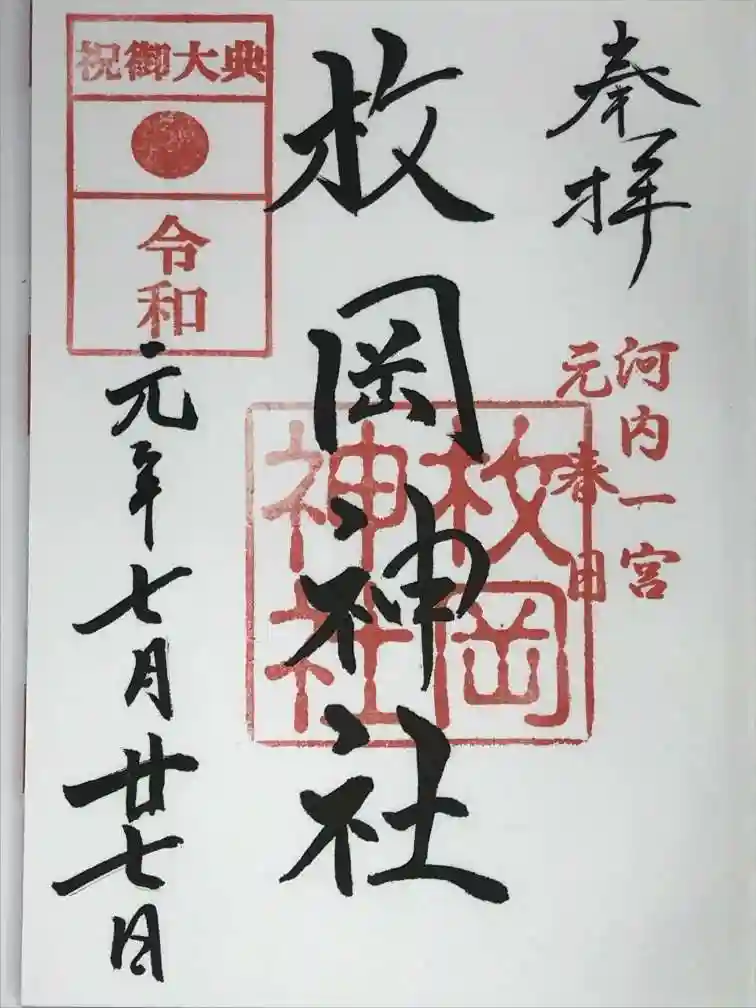 奉拝
河内一宮
元春日
枚岡神社
枚岡
神社
祝御大典
令和
元年七月廿七日